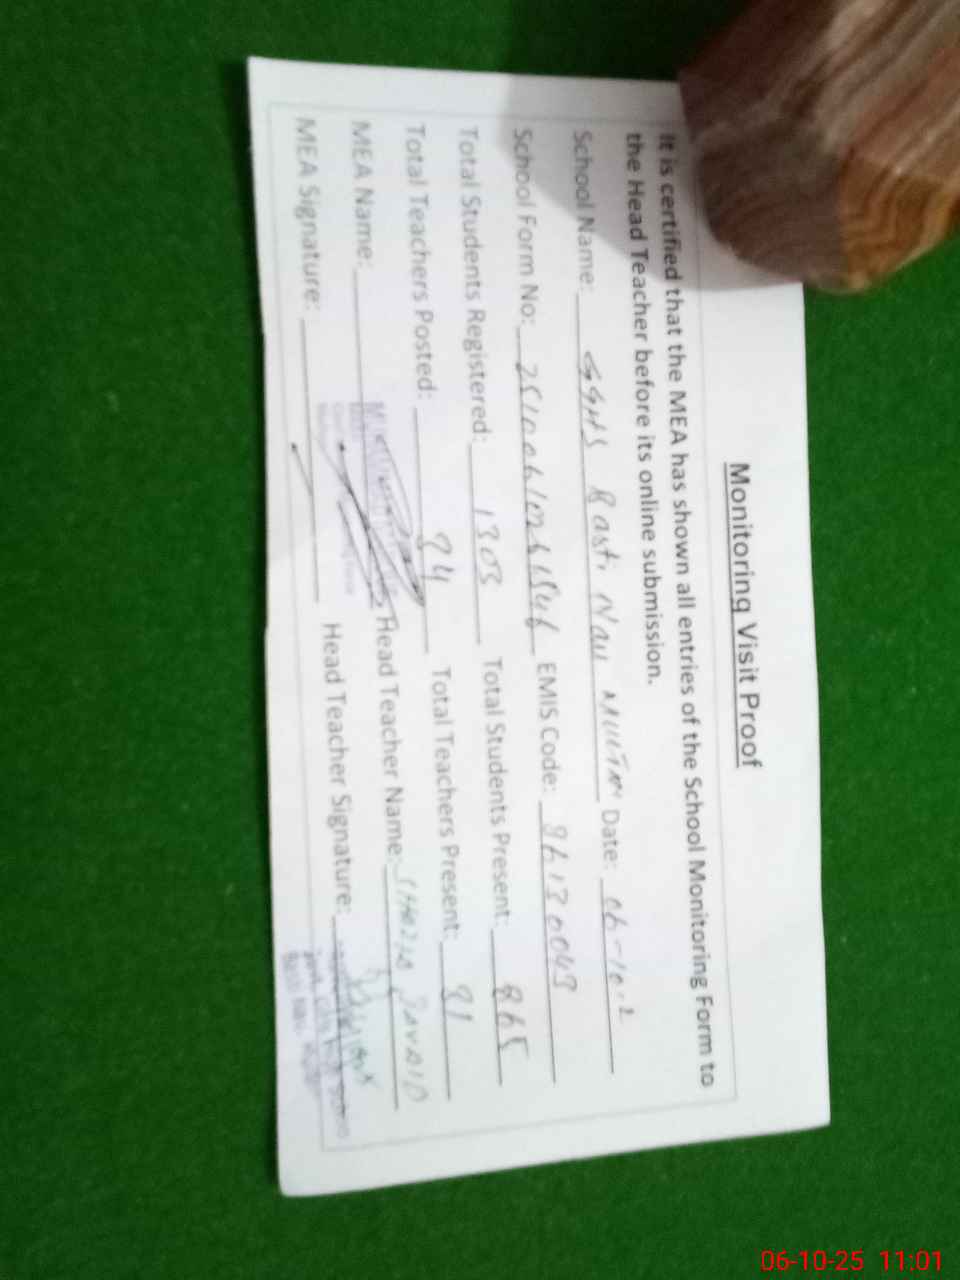 Monitoring Visit Proof
It is certified that the MEA has shown all entries of the School Monitoring Form to
the Head Teacher before its online submission.
School Name: GGHS Basti Nau MULTAN Date: 06-10-2
School Form No: EMIS Code:
Total Students Registered: 1303 Total Students Present: 865
Total Teachers Posted: 34 Total Teachers Present: 31
MEA Name: Head Teacher Name: SHAZIA JAVAID
MEA Signature: Head Teacher Signature:
06-10-25 11:01